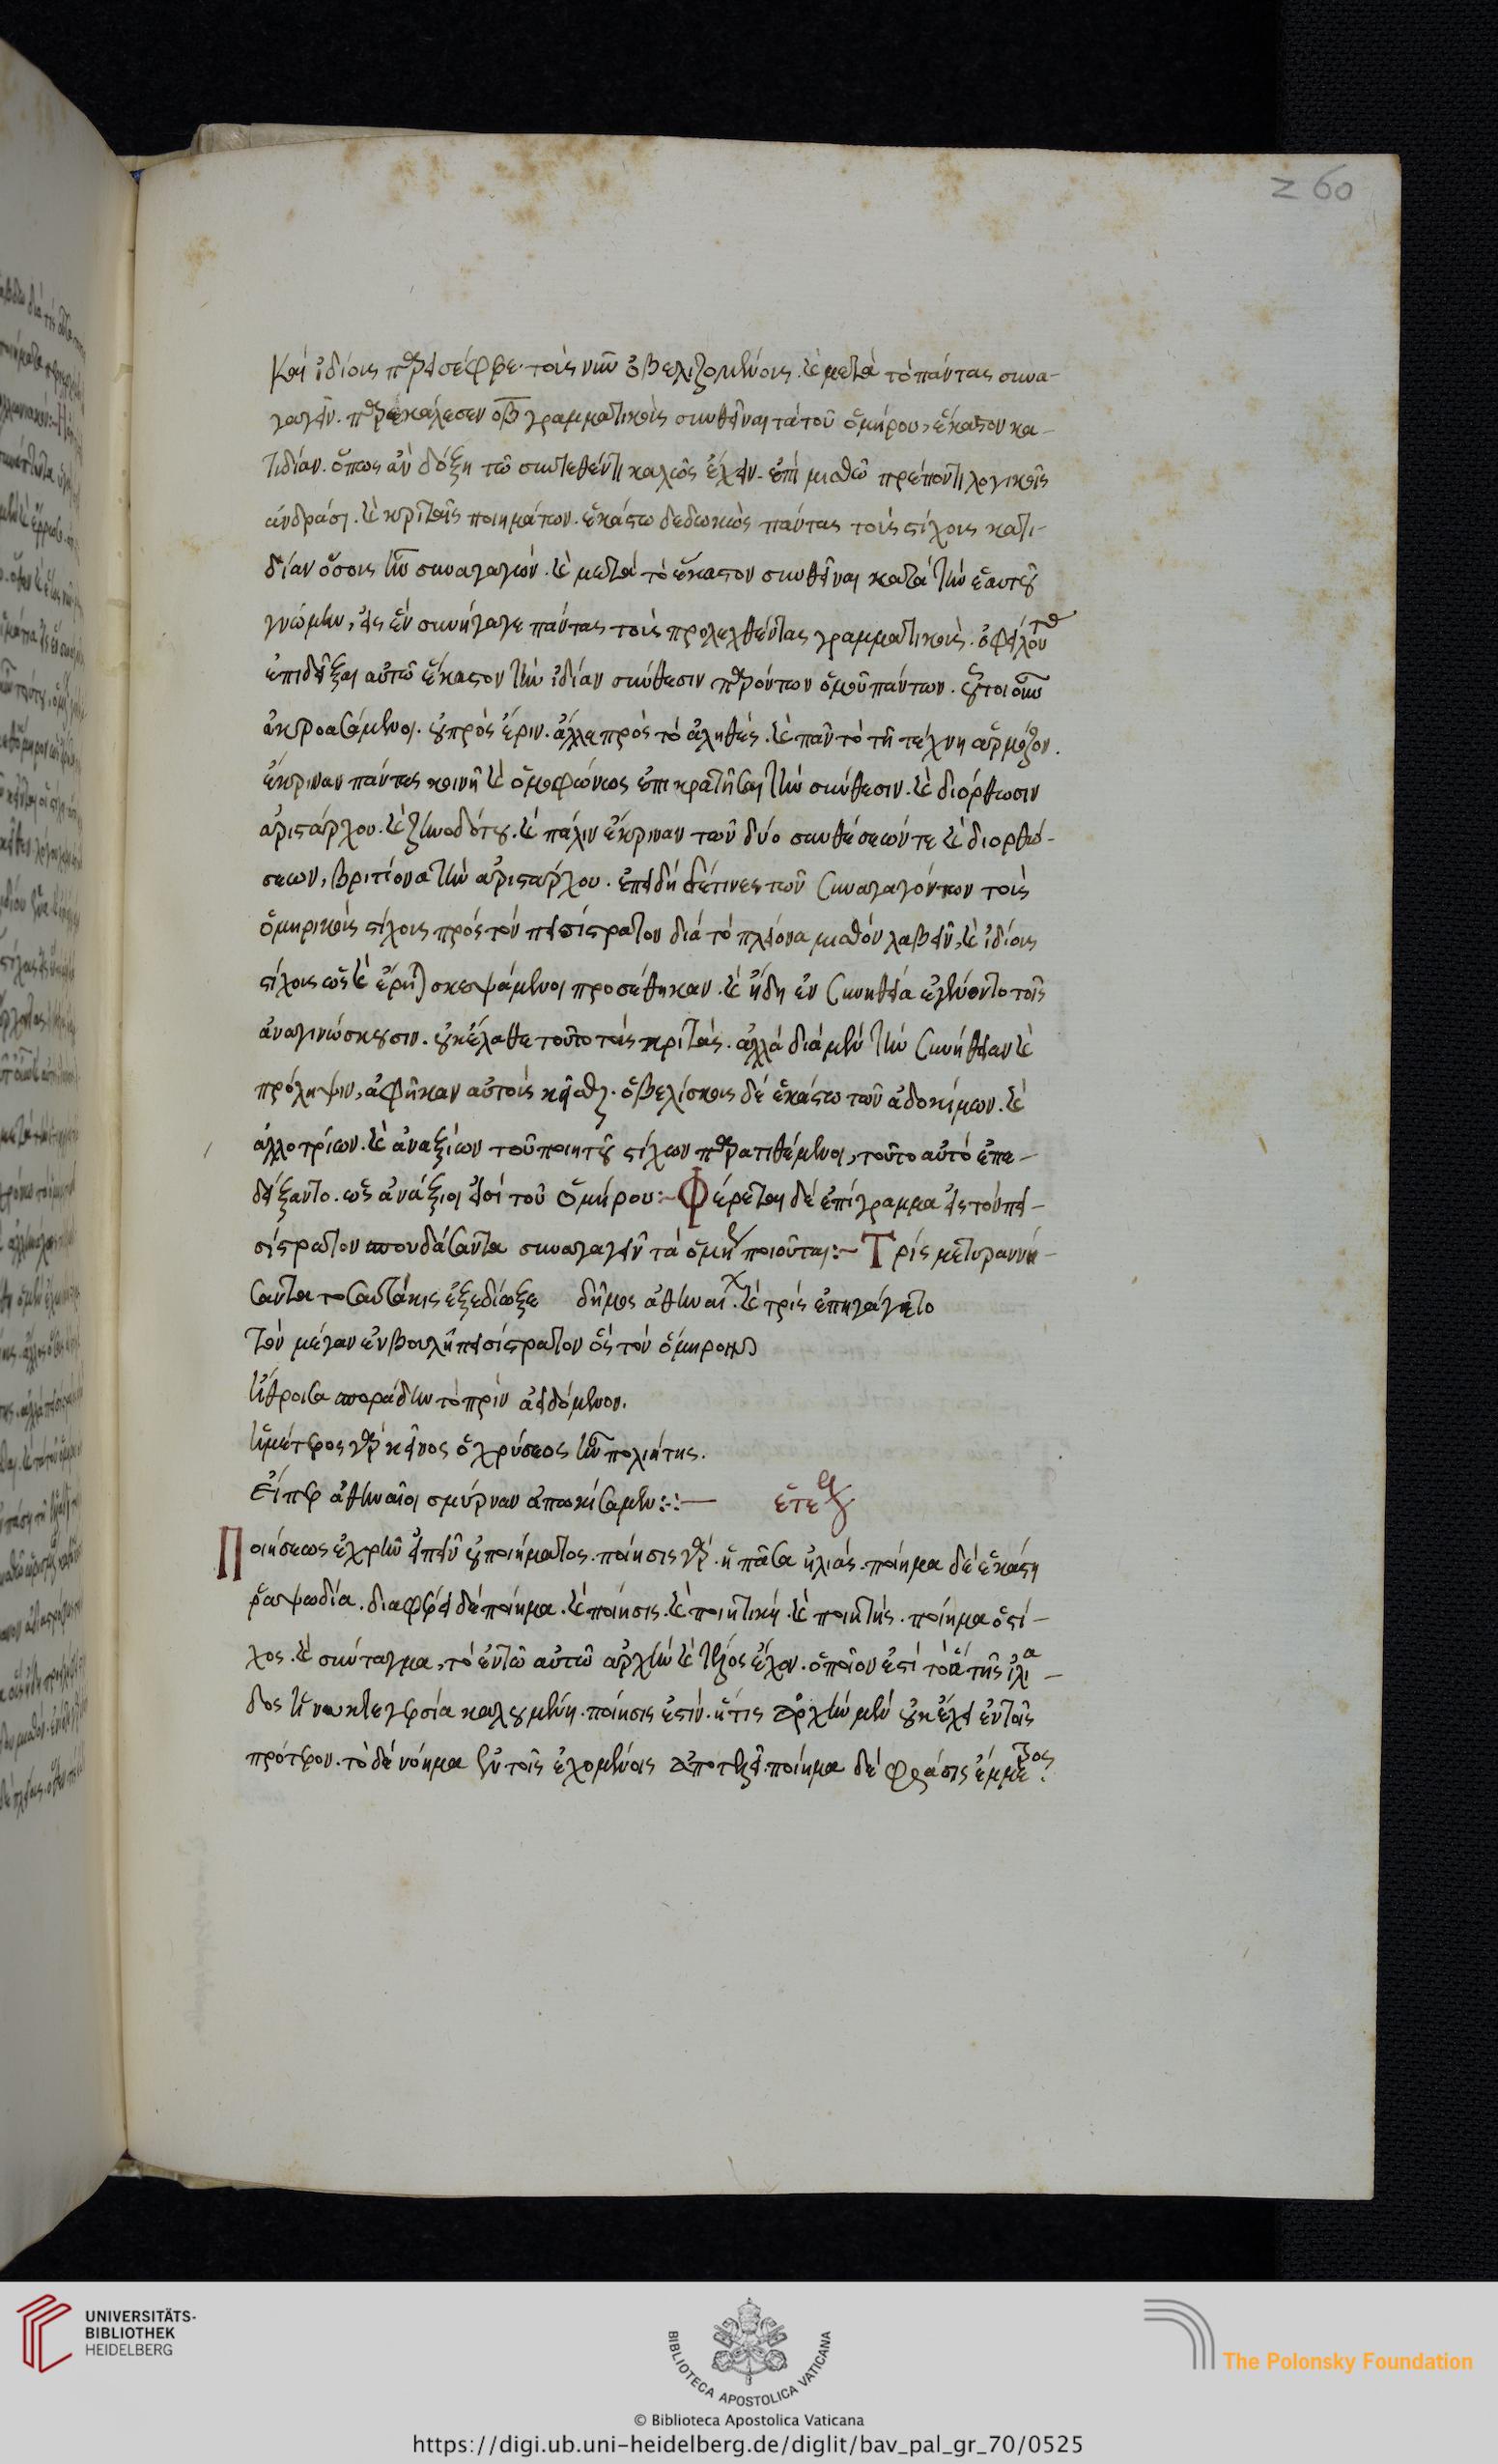 260
Καὶ ἰδίους παρεισέφερε τοὺς νῦν ὀβελιζομένους. καὶ μετὰ τὸ πάντας συνα-
γαγεῖν. παρεκάλεσεν οβ γραμματικοὺς συνθεῖναι τὰ τοῦ ὁμήρου, ἕκαστον κα-
τιδίαν. ὅπως ἂν δόξη τῶ συντεθέντι καλῶς ἔχειν. ἐπὶ μισθῶ πρέποντι λογικοῖς
ἀνδράσι. καὶ κριταῖς ποιημάτων. ἑκάστω δεδωκὼς πάντας τοὺς στίχους κατι-
δίαν ὅσους ἦν συναγαγών. καὶ μετὰ τὸ ἕκαστον συνθεῖναι κατὰ τὴν ἑαυτοῦ
γνώμην, εἰς ἓν συνήγαγε πάντας τοὺς προλεχθέντας γραμματικοὺς. ὀφείλοντας
ἐπιδεῖξαι αὐτῶ ἕκαστον τὴν ἰδίαν σύνθεσιν παρόντων ὁμοῦ πάντων. οὗτοι οὖν
ἀκροασάμενοι. οὐ πρὸς ἔριν. ἀλλὰ πρὸς τὸ ἀληθές. καὶ πᾶν τὸ τῆ τέχνη ἁρμόζον.
ἔκριναν πάντες κοινῆ καὶ ὁμοφώνως ἐπικρατῆσαι τὴν σύνθεσιν. καὶ διόρθωσιν
ἀριστάρχου. καὶ ζηνοδότου. καὶ πάλιν ἔκριναν τῶν δύο συνθέσεών τε καὶ διορθώ-
σεων, βριτίονα τὴν ἀριστάρχου. ἐπειδὴ δέ τινες τῶν συναγαγόντων τοὺς
ὁμηρικοὺς στίχους πρὸς τὸν πεισίστρατον διὰ τὸ πλείονα μισθὸν λαβεῖν, καὶ ἰδίους
στίχους ὡς καὶ εἴρηται σκεψάμενοι προσέθηκαν. καὶ ἤδη ἐν συνηθεία ἐγένοντο τοῖς
ἀναγινώσκουσιν. οὐκ ἔλαθε τοῦτο τοὺς κριτάς. ἀλλὰ διὰ μὲν τὴν συνήθειαν καὶ
πρόληψιν, ἀφῆκαν αὐτοὺς κεῖσθαι. ὀβελίσκους δὲ ἑκάστω τῶν ἀδοκίμων. καὶ
ἀλλοτρίων. καὶ ἀναξίων τοῦ ποιητοῦ στίχων παρατιθέμενοι, τοῦτο αὐτὸ ἐπε-
δείξαντο. ὡς ἀνάξιοι εἰσὶ τοῦ ὁμήρου:~ Φέρεται δὲ ἐπίγραμμα εἰς τὸν πει-
σίστρατον σπουδάσαντα συναγαγεῖν τὰ ὁμή ποιοῦται:~ Τρίς με τυραννή-
σαντα τοσαυτάκις ἐξεδίωξε δῆμος ἀθηναί. καὶ τρὶς ἐπηγάγετο
Τὸν μέγαν ἐν βουλῆ πεισίστρατον ὃς τὸν ὅμηρον
ἤθροισα σποράδην τὸ πρὶν ἀειδόμενον.
ἡμέτερος γὰρ κεῖνος ὁ χρύσεος ἦν πολιήτης.
Εἴπερ ἀθηναῖοι σμύρναν ἀπωκίσαμεν:·:—
Ποιήσεως ἐχρῆν εἰπεῖν οὐ ποιήματος. ποίησις γὰρ. ἡ πᾶσα ἠλιάς. ποίημα δὲ ἑκάστη
ῥαψωδία. διαφέρει δὲ ποίημα. καὶ ποίησις. καὶ ποιητική. καὶ ποιητής. ποίημα ὁ στί-
χος. καὶ σύνταγμα, τὸ ἐν τῶ αὐτῶ ἀρχὴν καὶ τέλος ἔχον. ὁποῖον ἐστὶ τὸ α τῆς ἰλιά-
δος ἢ νυκτεγερσία καλουμένη. ποίησις ἐστίν. ἥτις ἀρχὴν μὲν οὐκ ἔχει ἐν τοῖς
πρότερον. τὸ δὲ νόημα ἐν τοῖς ἐχομένοις ἀποτελεῖ. ποίημα δὲ φράσις ἔμμετρος.
UNIVERSITÄTS-
BIBLIOTHEK
HEIDELBERG
BIBLIOTECA APOSTOLICA VATICANA
The Polonsky Foundation
© Biblioteca Apostolica Vaticana
https://digi.ub.uni-heidelberg.de/diglit/bav_pal_gr_70/0525